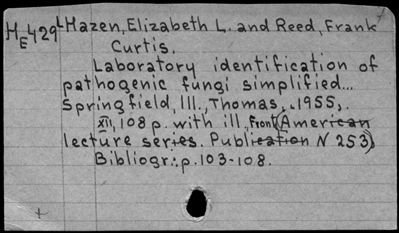 HE429 L Hazen, Elizabeth L. and Reed, Frank
Curtis.
Laboratory identification of
pathogenic fungi simplified...
Springfield, Ill., Thomas, 1955.
XII, 108 p. with ill., Front. (American
lecture series. Publication N 253)
Bibliogr.: p. 103-108.